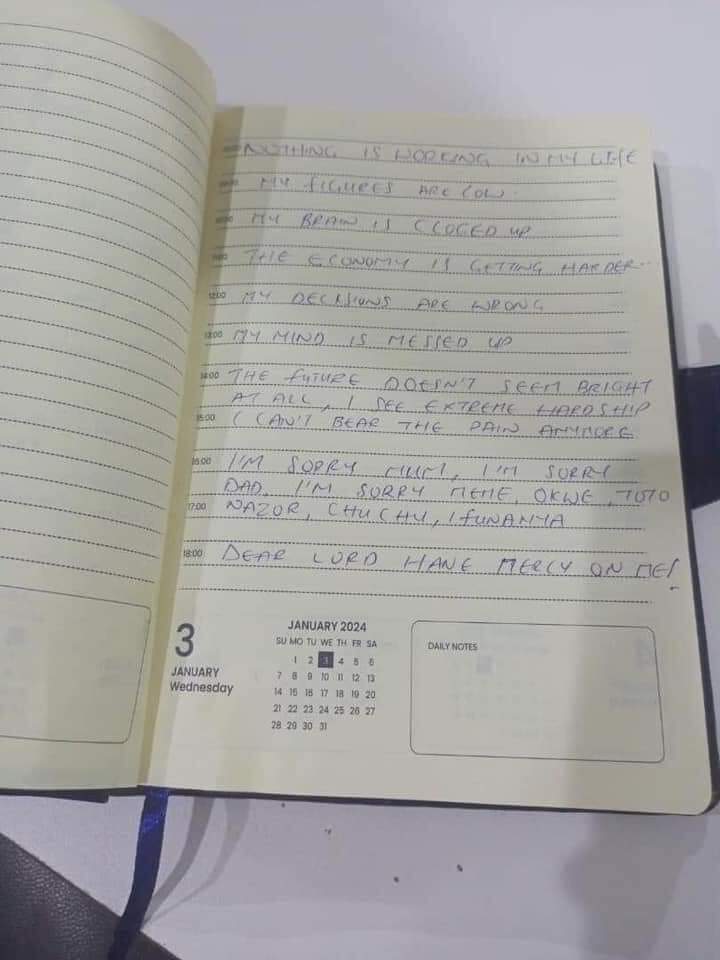 NOTHING IS WORKING IN MY LIFE
MY FIGURES ARE LOW
MY BRAIN IS CLOGED UP
11:00 THE ECONOMY IS GETTING HARDER
12:00 MY DECISIONS ARE WRONG
13:00 MY MIND IS MESSED UP
14:00 THE FUTURE DOESN'T SEEM BRIGHT
AT ALL, I SEE EXTREME HARDSHIP
15:00 I CAN'T BEAR THE PAIN ANYMORE
16:00 I'M SORRY MUM, I'M SORRY
DAD, I'M SORRY MEME, OKWE, TOTO
17:00 NAZOR, CHUCHU, IFUNANYA
18:00 DEAR LORD HAVE MERCY ON ME!
3
JANUARY
Wednesday
JANUARY 2024
SU MO TU WE TH FR SA
1 2 3 4 5 6
7 8 9 10 11 12 13
14 15 16 17 18 19 20
21 22 23 24 25 26 27
28 29 30 31
DAILY NOTES